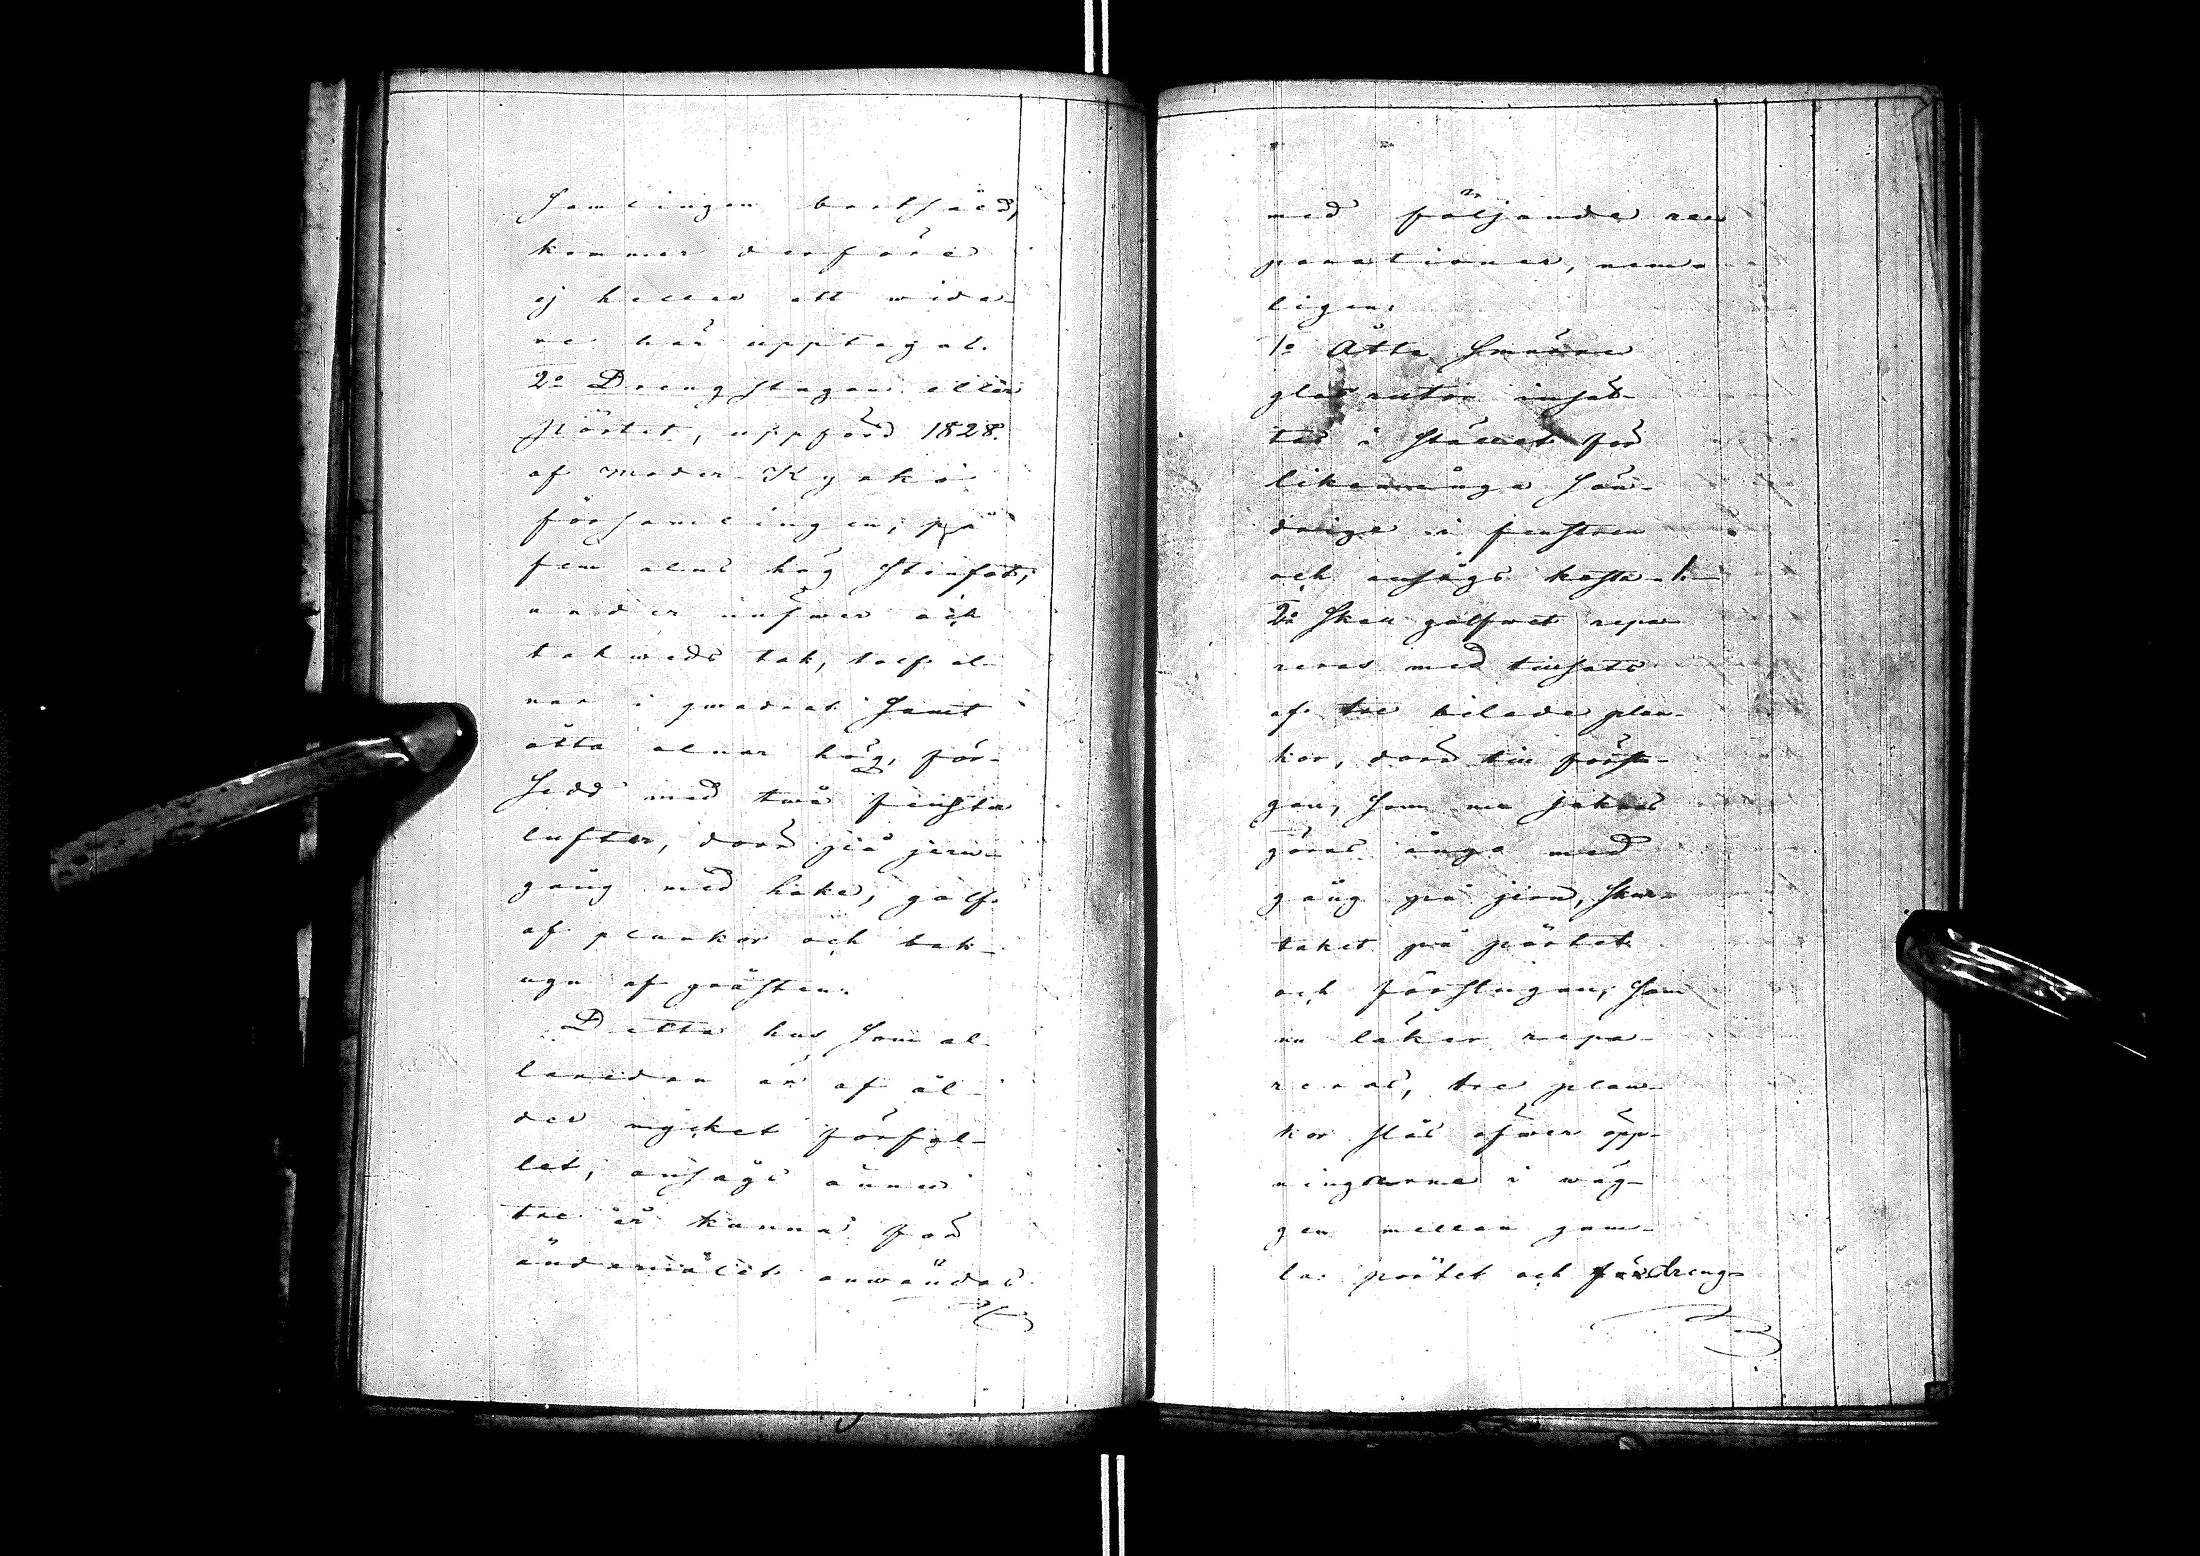 samlingen bortförd,
kommer derföre
ej heller att wida-
re här upptagas.
2o Drengstugan eller
pörtet, uppförd 1828.
af moder Kyrko
församlingen, på
fem alns hög stenfot,
under näfwer och
takweds tak, tolf al-
nar i quadrat samt
åtta alnar hög, för-
sedd med twå fenster
lufter, dörr på jern-
gång med hake, golf
af plankor och bak-
ugn af gråsten.
Detta hus som al-
laredan är af ål-
der mycket förfal-
let, ansågs ännu
tre år kunna för
ändamålet användas
med följande re-
parationer, nem-
ligen:
1o Åtta smärre
glas rutor insät-
tas i stället för
likamånga sön-
drige i fenstren
och ansågs kosta 1.
2o Skall golfwet repa-
reras med tillsats
af tre bilade plan-
kor, dörr till förstu-
gan, som nu saknas
göras ånyo med
gång på jern, skar-
taket på pörtet
och förstugan, som
nu läker repa-
reras, tre plan-
kor slås öfwer öpp-
ningarna i wäg-
gen mellan gam-
la pörtet och dreng-